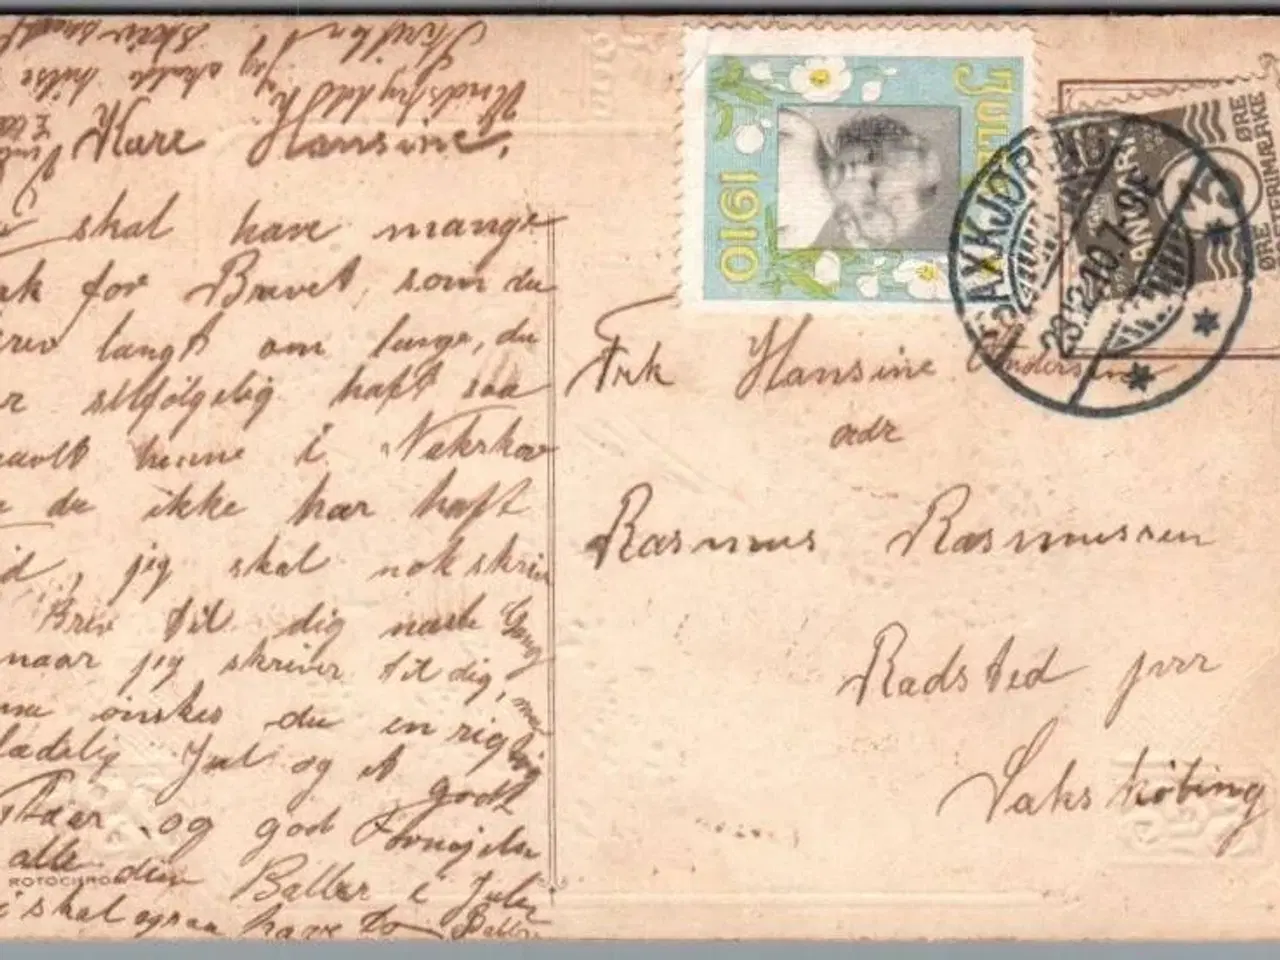 Kære Hansine,
skal have mange
Tak for Brevet, som du
skrev langt om længe, du
har selfølgelig haft saa
travlt henne i Nakskov
du ikke har haft
Tid, jeg skal nok skrive
Brev til dig næste Gang
naar jeg skriver til dig,
ønskes du en rigtig
glædelig Jul og et godt
Nytaar og god Fornøjelse
alle dine Baller i Julen
vi skal ogsaa have to Baller
jeg skulde hilse
JULEN
1910
SAXKJØBING
23.12.10. 7-9E
DANMARK
3
ØRE
ØRE
FRIMÆRKE
Frk Hansine Andersen
adr
Rasmus Rasmussen
Radsted pr
Sakskøbing
ROTOCHROM